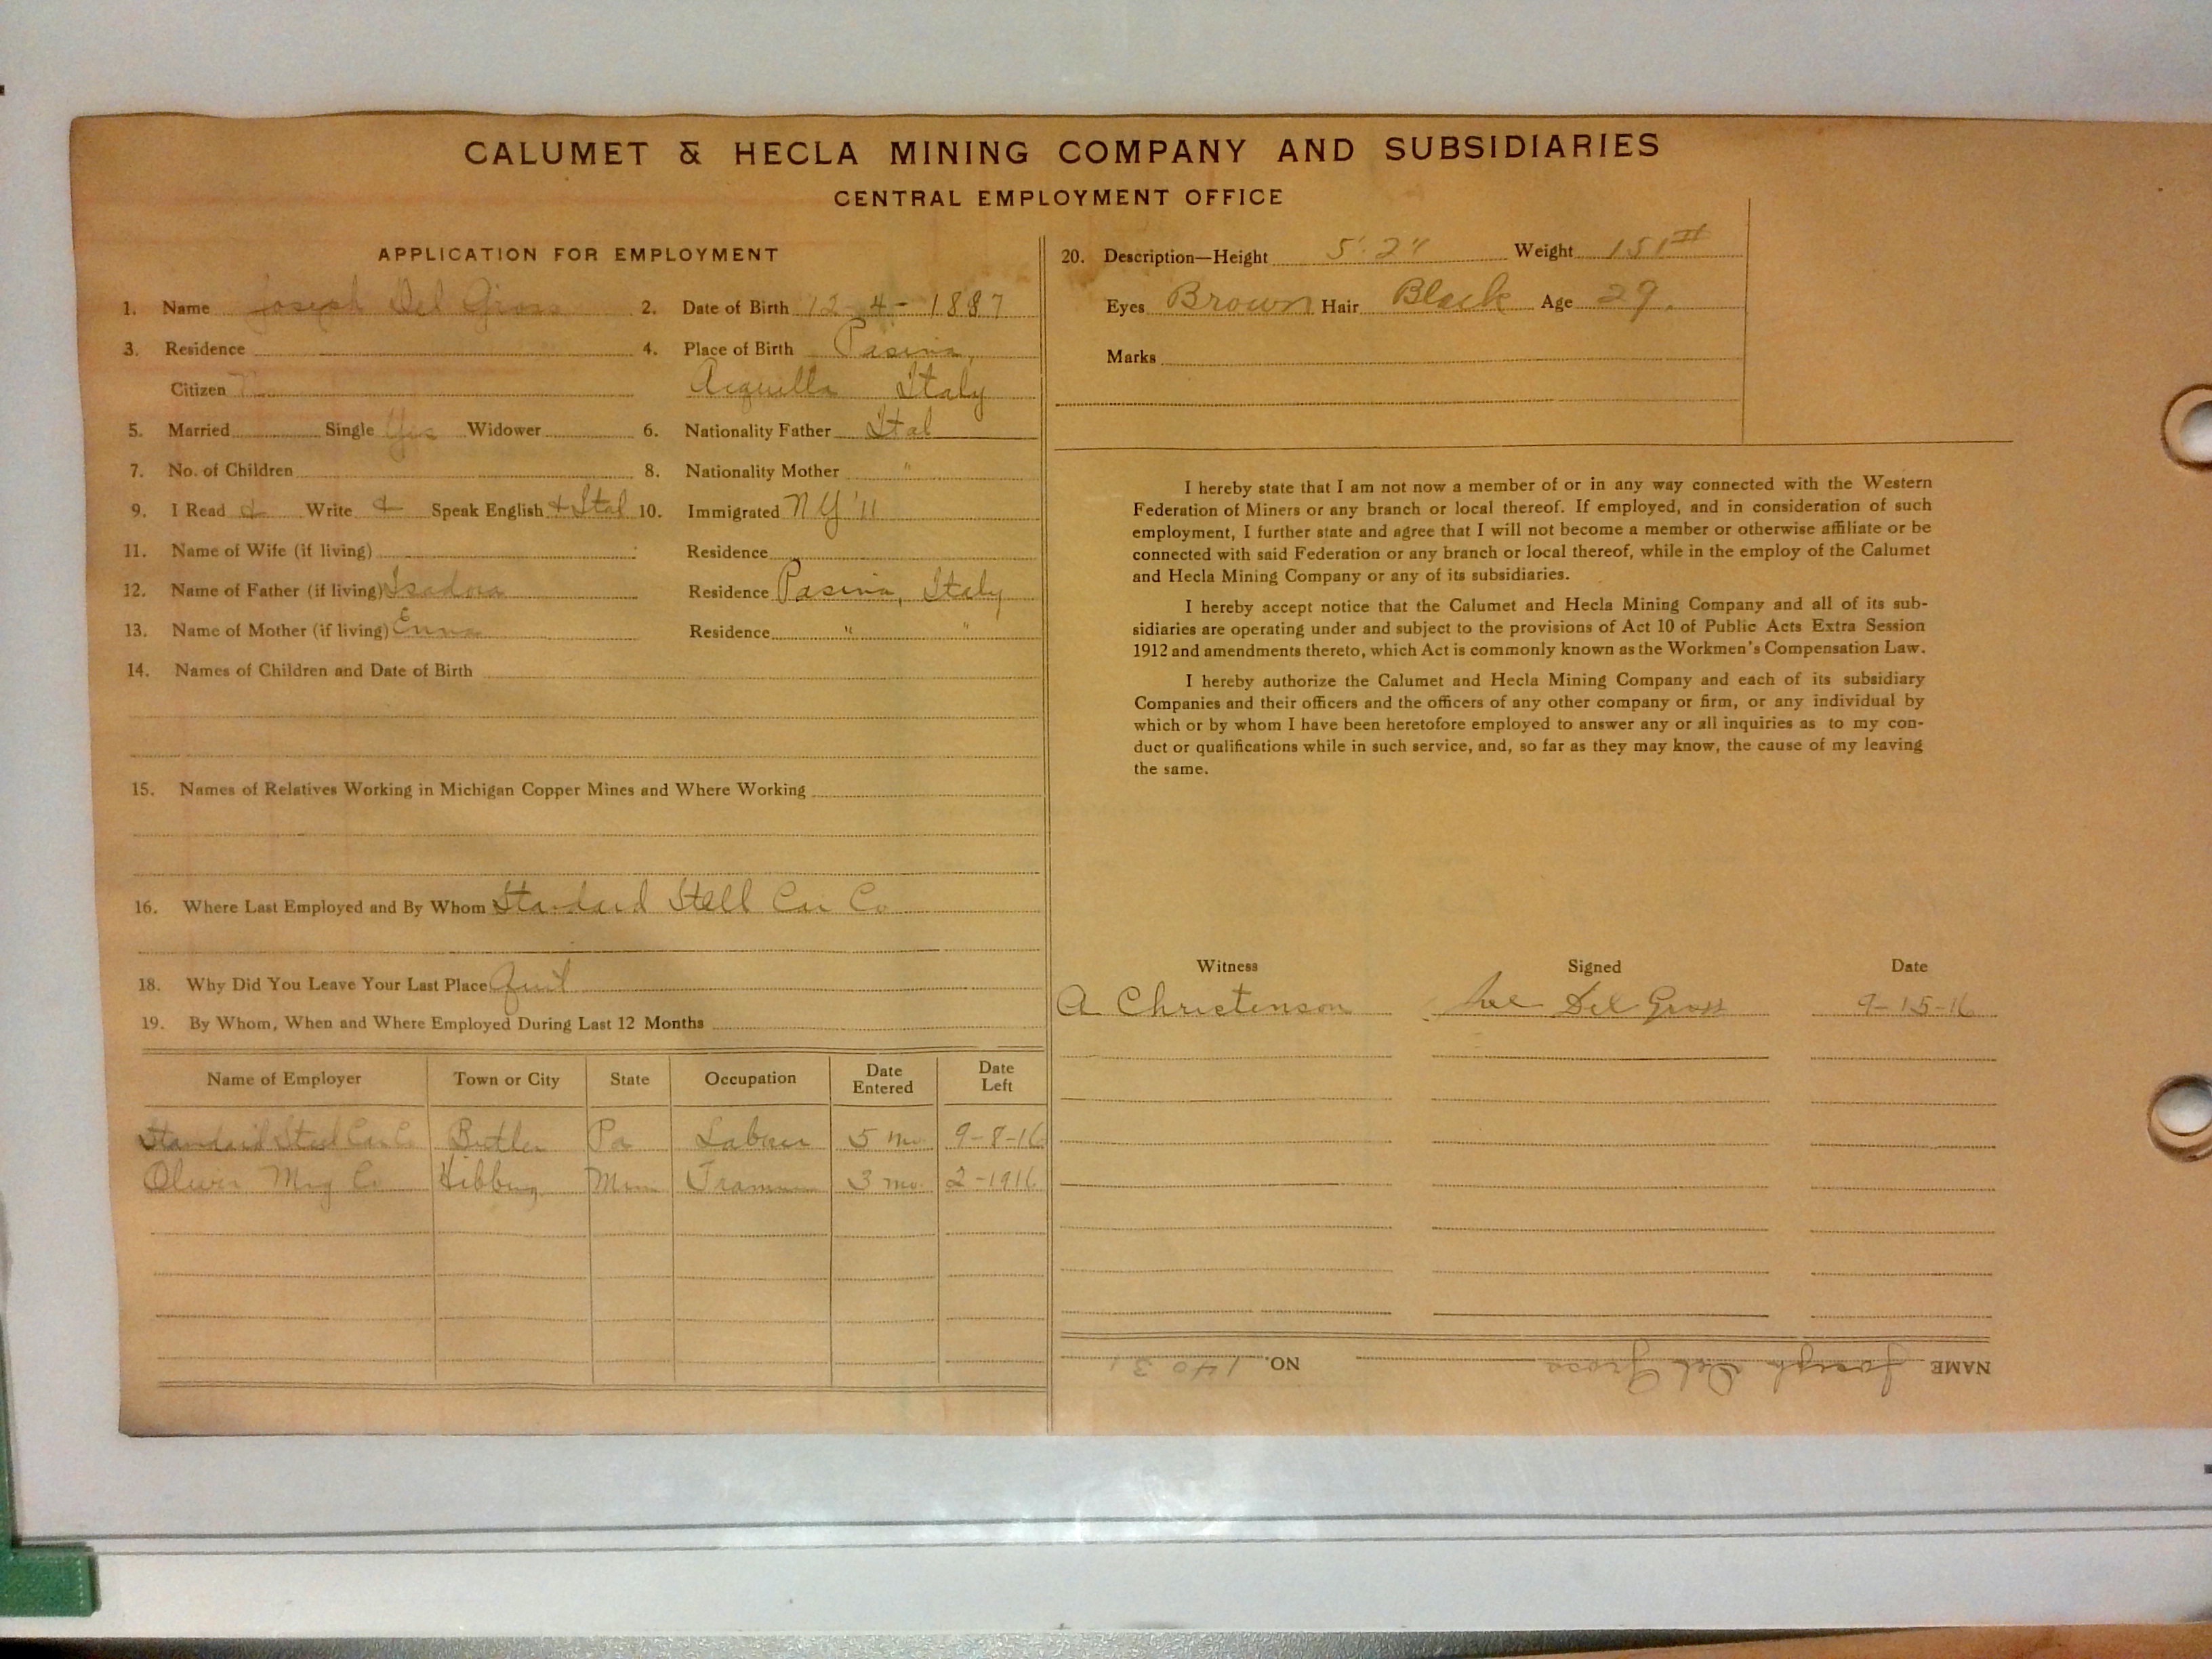 CALUMET & HECLA MINING COMPANY AND SUBSIDIARIES
CENTRAL EMPLOYMENT OFFICE
APPLICATION FOR EMPLOYMENT
1. Name Joseph Del Gross 2. Date of Birth 12-4-1887
3. Residence 4. Place of Birth Pasina,
Citizen Acquilla Italy
5. Married Single Yes Widower 6. Nationality Father Ital
7. No. of Children 8. Nationality Mother "
9. I Read & Write & Speak English & Ital 10. Immigrated NY '11
11. Name of Wife (if living) Residence
12. Name of Father (if living) Isadora Residence Pasina, Italy
13. Name of Mother (if living) Emma Residence " "
14. Names of Children and Date of Birth
15. Names of Relatives Working in Michigan Copper Mines and Where Working
16. Where Last Employed and By Whom Standard Stell Car Co
18. Why Did You Leave Your Last Place Quit
19. By Whom, When and Where Employed During Last 12 Months
Name of Employer Town or City State Occupation Date Entered Date Left
Standard Steel Car Co Butler Pa Laborer 5 mo. 9-8-16
Oliver Mng Co Hibbing Minn Tramman 3 mo. 2-1916
20. Description—Height 5'.2" Weight 151#
Eyes Brown Hair Black Age 29.
Marks
I hereby state that I am not now a member of or in any way connected with the Western
Federation of Miners or any branch or local thereof. If employed, and in consideration of such
employment, I further state and agree that I will not become a member or otherwise affiliate or be
connected with said Federation or any branch or local thereof, while in the employ of the Calumet
and Hecla Mining Company or any of its subsidiaries.
I hereby accept notice that the Calumet and Hecla Mining Company and all of its sub-
sidiaries are operating under and subject to the provisions of Act 10 of Public Acts Extra Session
1912 and amendments thereto, which Act is commonly known as the Workmen's Compensation Law.
I hereby authorize the Calumet and Hecla Mining Company and each of its subsidiary
Companies and their officers and the officers of any other company or firm, or any individual by
which or by whom I have been heretofore employed to answer any or all inquiries as to my con-
duct or qualifications while in such service, and, so far as they may know, the cause of my leaving
the same.
Witness Signed Date
A Christenson Joe Del Gross 9-15-16
NAME Joseph Del Gross NO. 14031